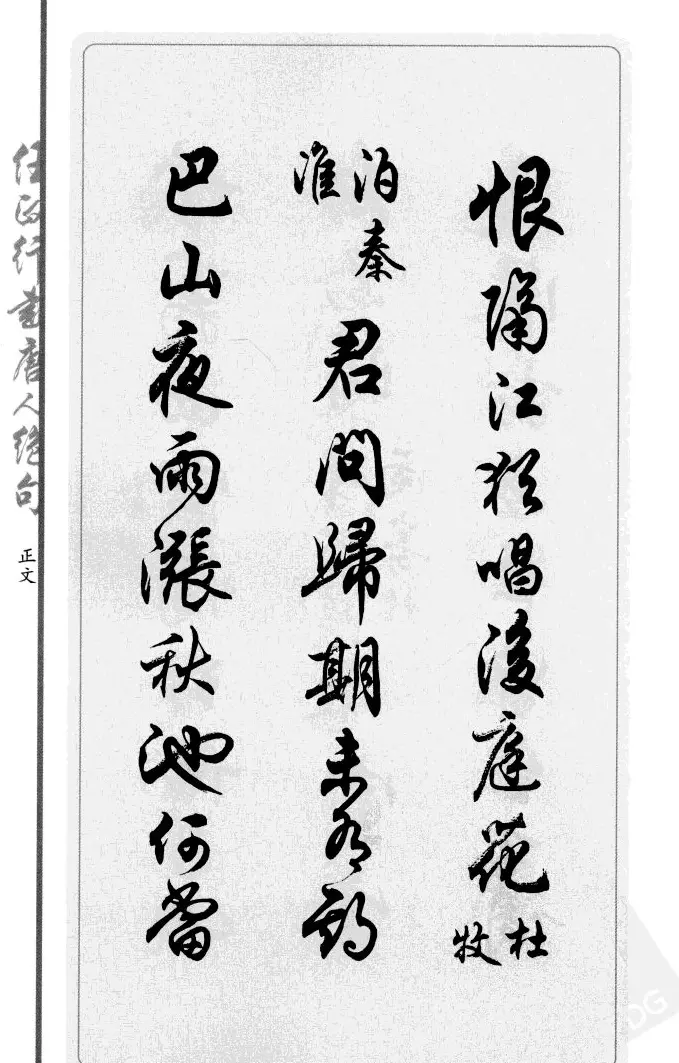 恨隔江猶唱後庭花
杜
牧
泊秦
淮
君問歸期未有期
巴山夜雨漲秋池何當
任政行書唐人絕句
正文
DG